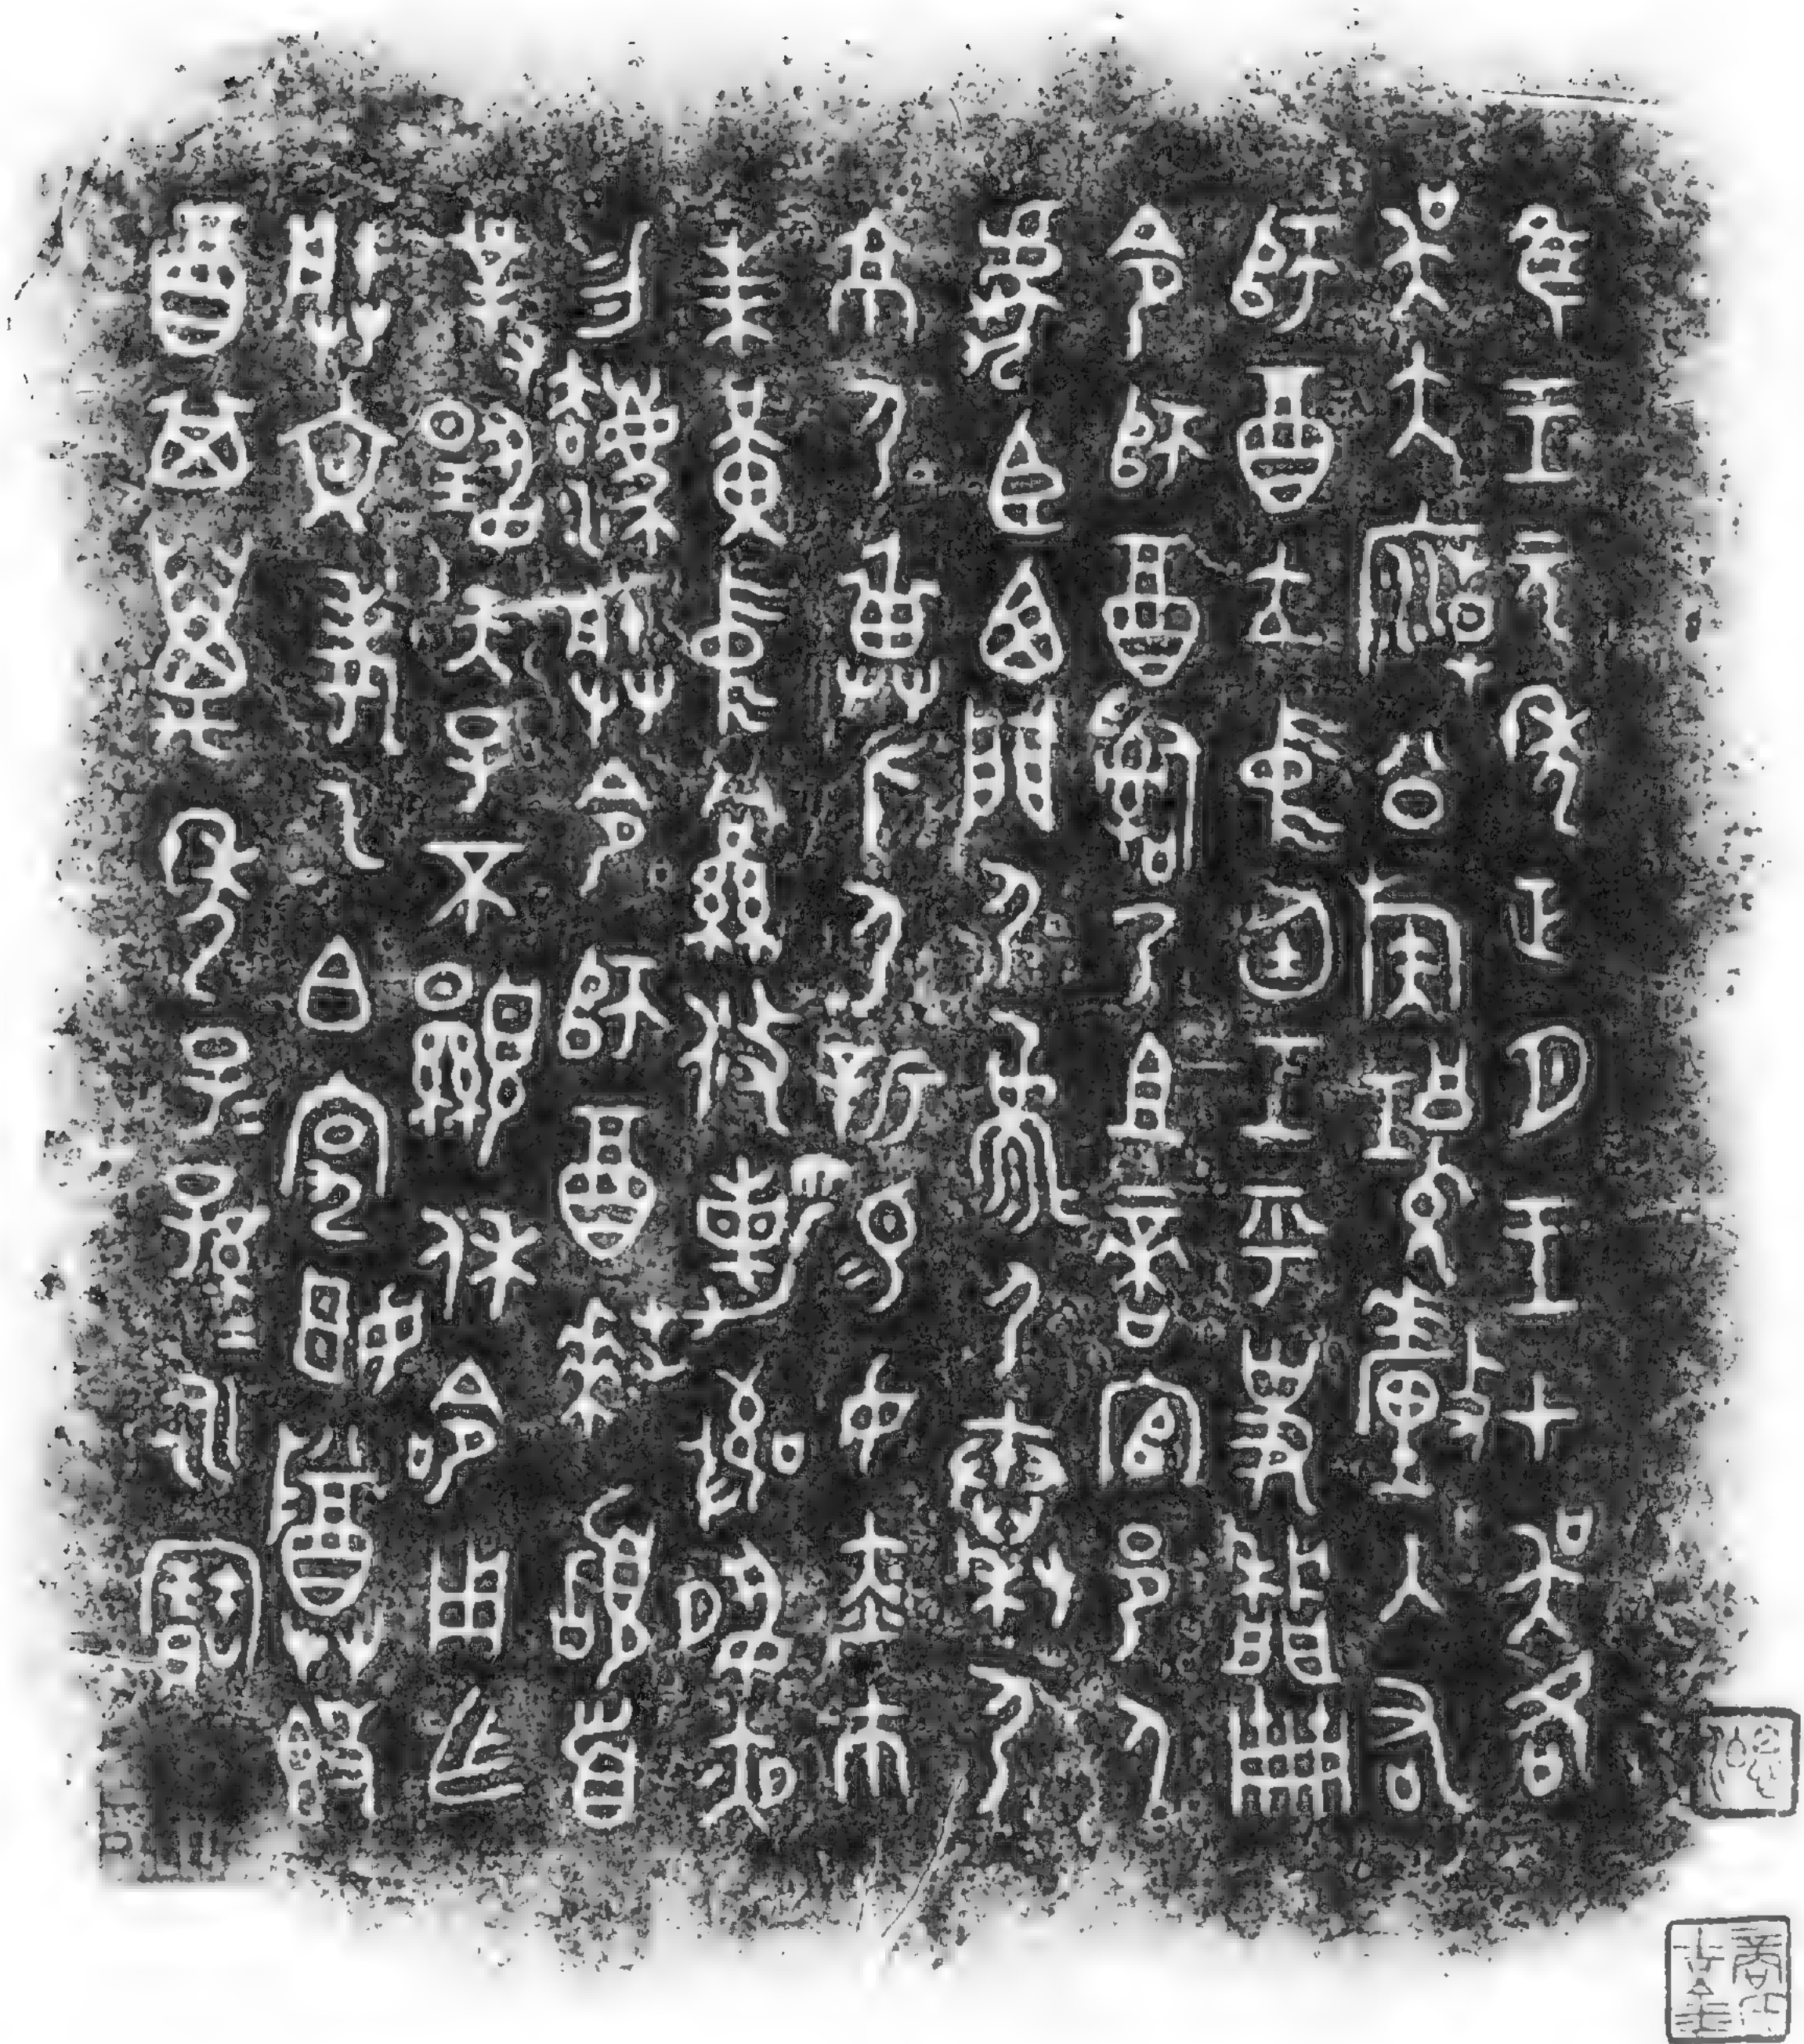 隹王元年正月王才吳各
吳大廟公族釐入右
師酉立中廷王乎史冊
令師酉嗣乃且啻官邑人
虎臣西門尸尸秦尸
京尸畁身尸新易女赤巿
朱黃中絅攸勒敬夙夜
勿灋朕令師酉拜稽首
對揚天子不顯休令用乍
朕文考乙白宄姬尊簋
酉其萬年子=孫=永寶